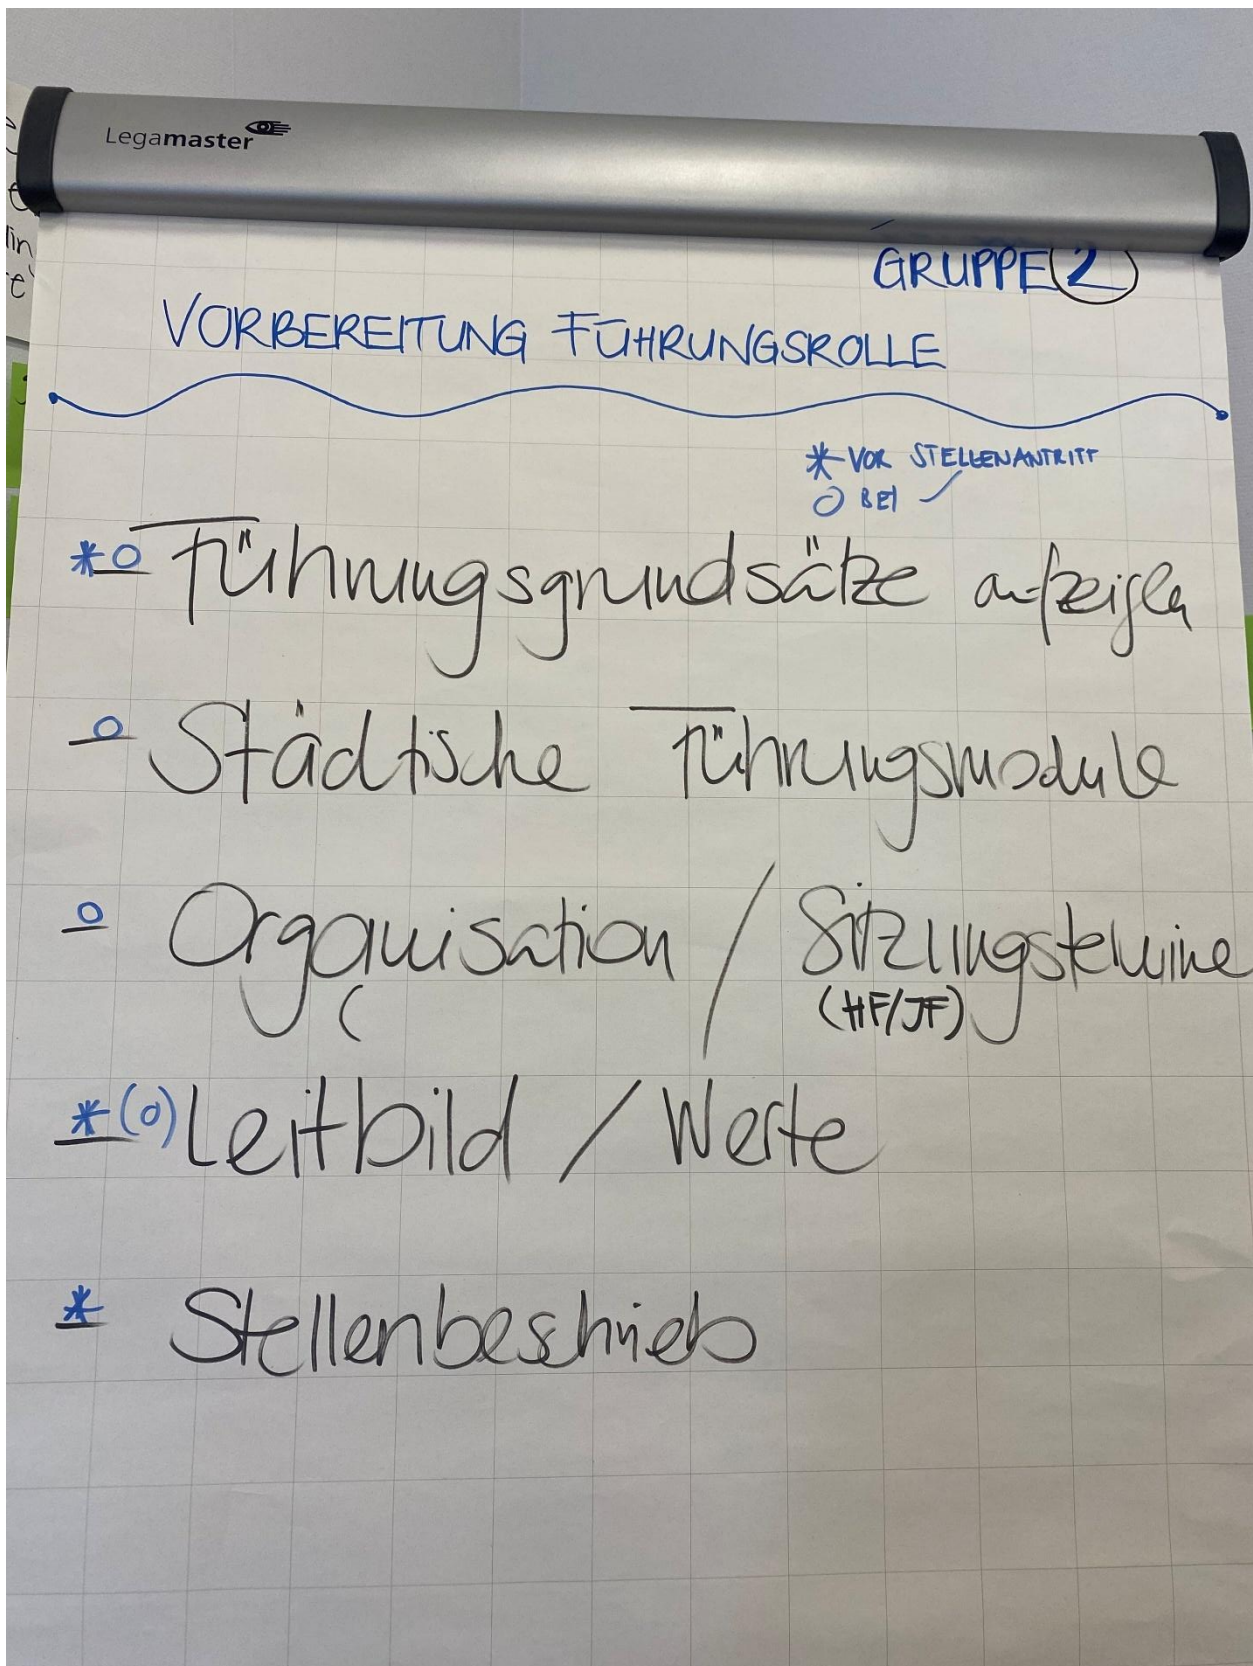 Legamaster
GRUPPE 2
VORBEREITUNG FÜHRUNGSROLLE
* VOR STELLENANTRITT
O BEI
*O Führungsgrundsätze aufzeigen
O Städtische Führungsmodule
O Organisation / Sitzungstermine
( (HF/JF)
*(O) Leitbild / Werte
* Stellenbeschrieb